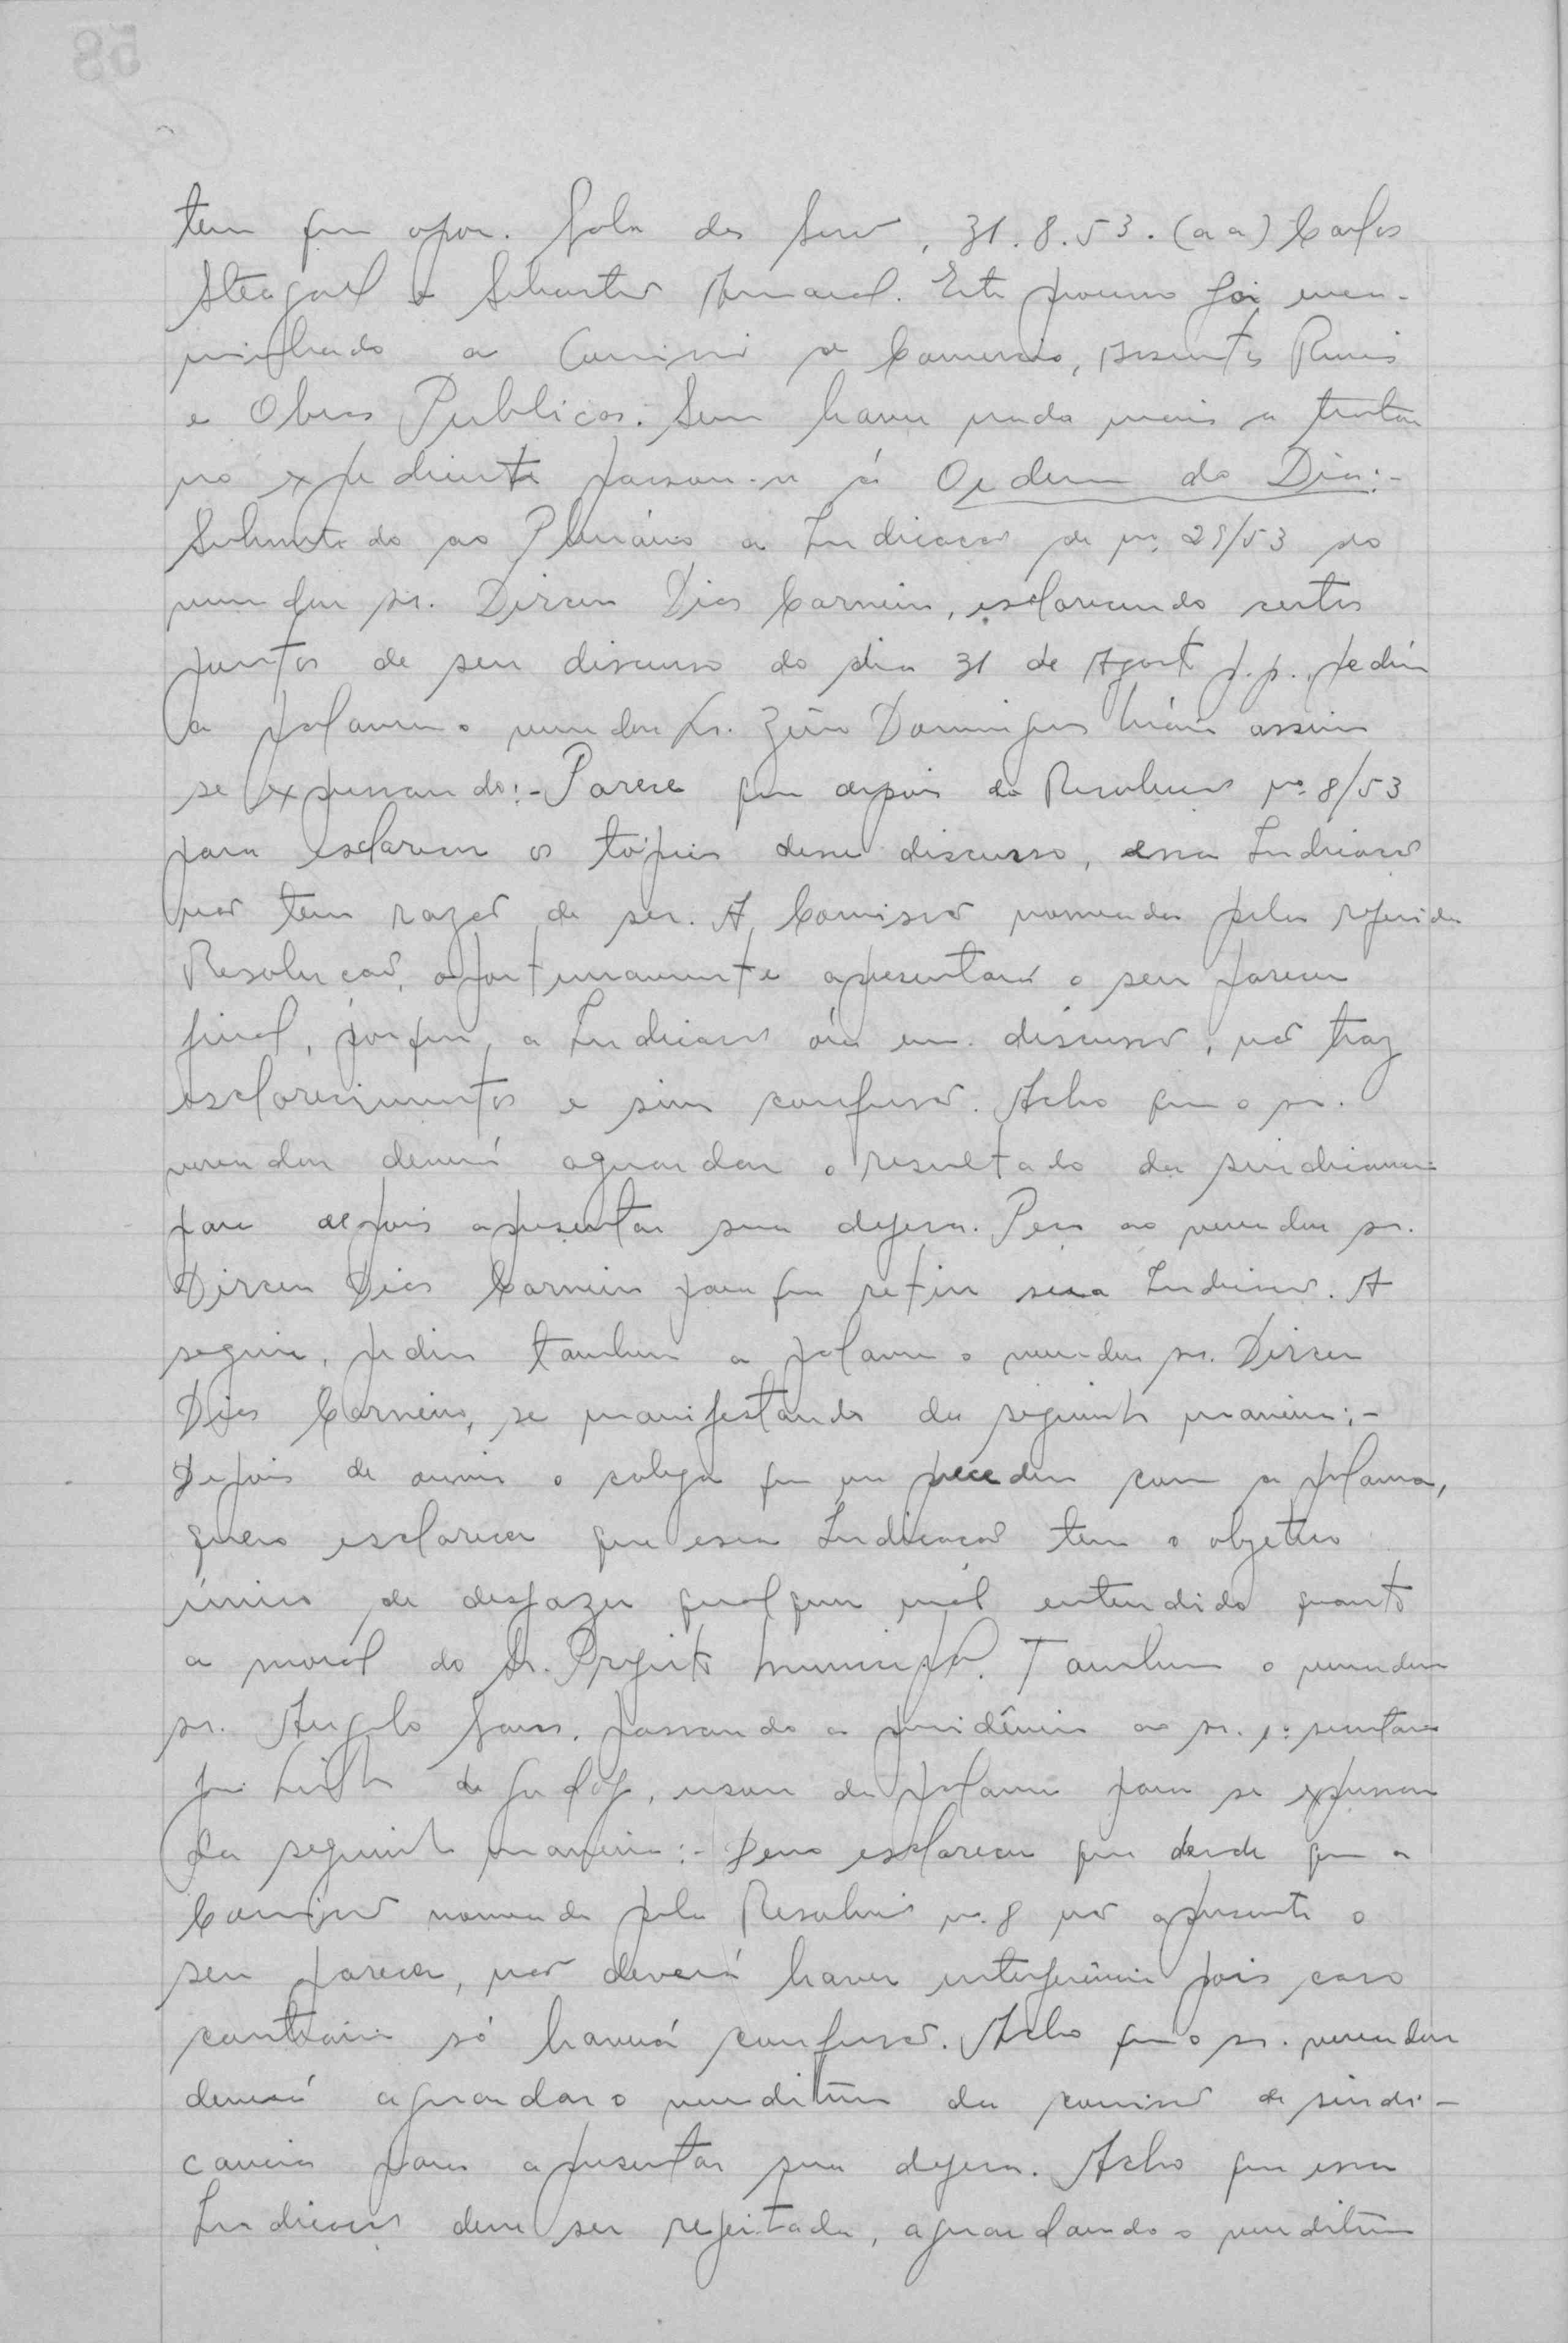 tem que opor. Sala das Sessões, 31.8.53. (a a) Carlos
Steagall e Sebastião Amaral. Este processo foi enca-
minhado a Comissão de Comercio, Assuntos Rurais
e Obras Publicas. Sem haver nada mais a tratar
no expediente passou-se á Ordem do Dia:-
Submetido ao Plenário a Indicação de nº 28/53 do
vereador sr. Dirceu Dias Carneiro, esclarecendo certos
pontos de seu discurso do dia 31 de Agosto p.p., pediu
a palavra o vereador Sr. Domingues assim
se expressando:- Parece que depois da Resolução nº 8/53
para esclarecer os tópicos desse discurso, essa Indicação
não tem razão de ser. A Comissão nomeada pela referida
Resolução, oportunamente apresentará o seu parecer
final, porque, a Indicação ora em discussão, não traz
esclarecimentos e sim confusão. Acho que o sr.
vereador deverá aguardar o resultado da sindicancia
para depois apresentar sua defesa. Peço ao vereador sr.
Dirceu Dias Carneiro para que retire sua Indicação. A
seguir, pediu tambem a palavra o vereador sr. Dirceu
Dias Carneiro, se manifestando da seguinte maneira:-
Depois de ouvir o colega que me precedeu com a palavra,
quero esclarecer que essa Indicação tem o objetivo
único de desfazer qualquer mal entendido quanto
a moral do Sr. Prefeito Municipal. Tambem o vereador
sr. Angelo passando a presidência ao sr. 1º secretario
de Godoy, usou da palavra para se expressar
da seguinte maneira:- Devo esclarecer que desde que a
Comissão nomeada pela Resolução nº 8 não apresente o
seu parecer, não deverá haver interferência pois caso
contrario só haverá confusão. Acho que o sr. vereador
deverá aguardar o vereditum da comissão de sindi-
cancia para apresentar sua defesa. Acho que essa
Indicação deve ser rejeitada, aguardando o vereditum